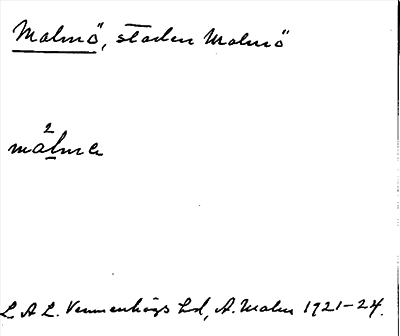 Malmö, staden Malmö
2
malme
L A L. Vemmenhögs hd, A. Malm 1921-24.